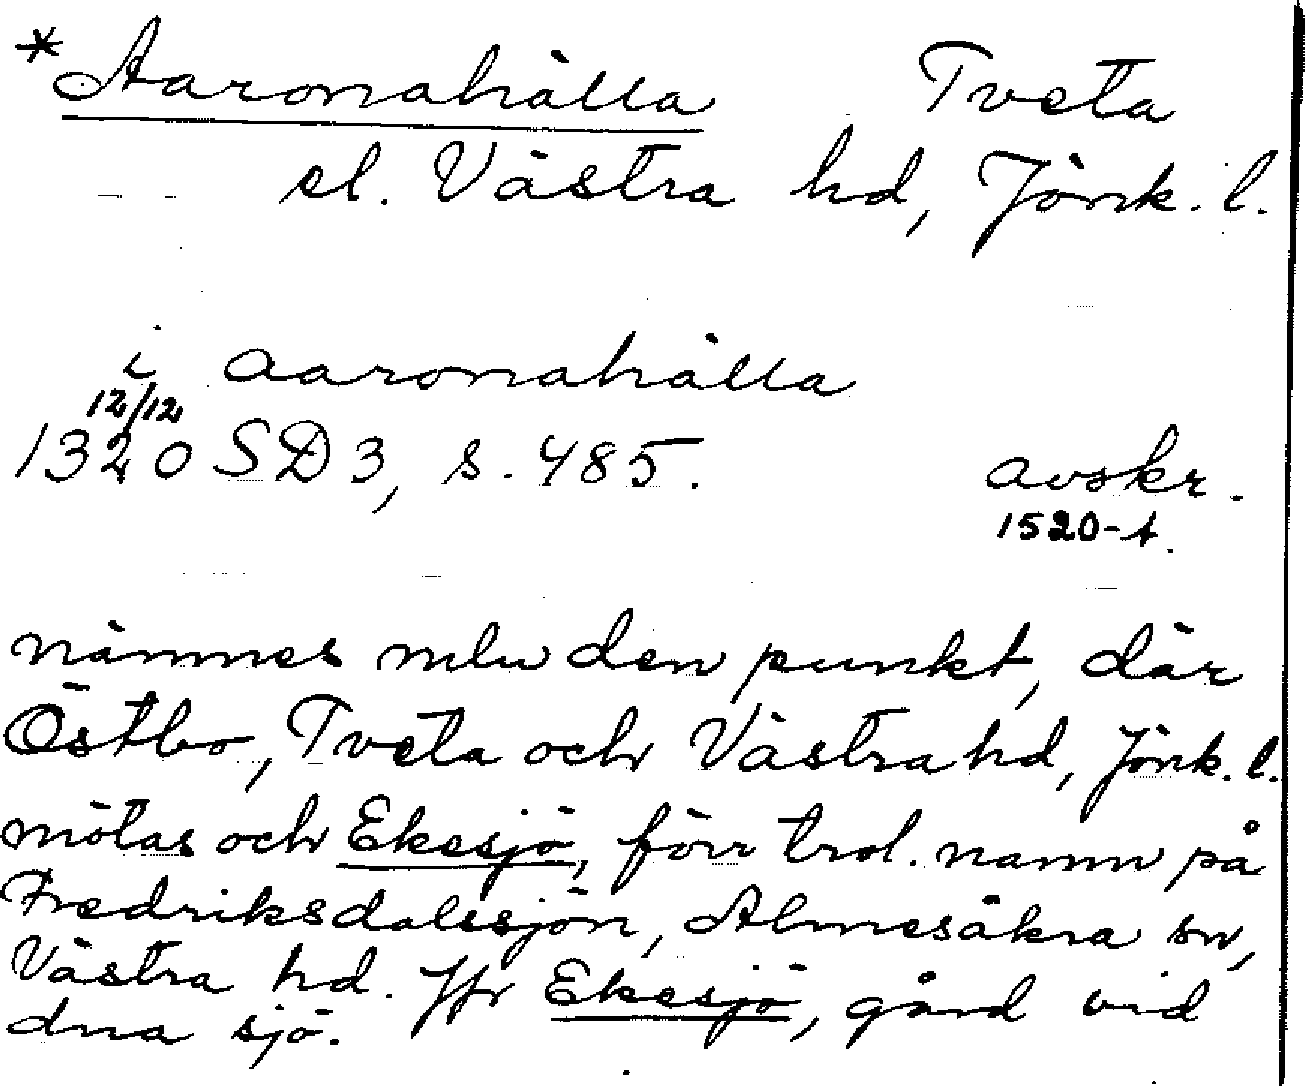 *Aaronahälla Tveta
el. Västra hd, Jönk. l.
i aaronahälla
12/12
1320 SD 3, s. 485. avskr.
1520-t.
nämnes mlu den punkt, där
Östbo, Tveta och Västra hd, Jönk. l.
mötas och Ekesjö, förr trol. namn på
Fredriksdalssjön, Almesåkra sn,
Västra hd. Jfr Ekesjö, gård vid
dna sjö.